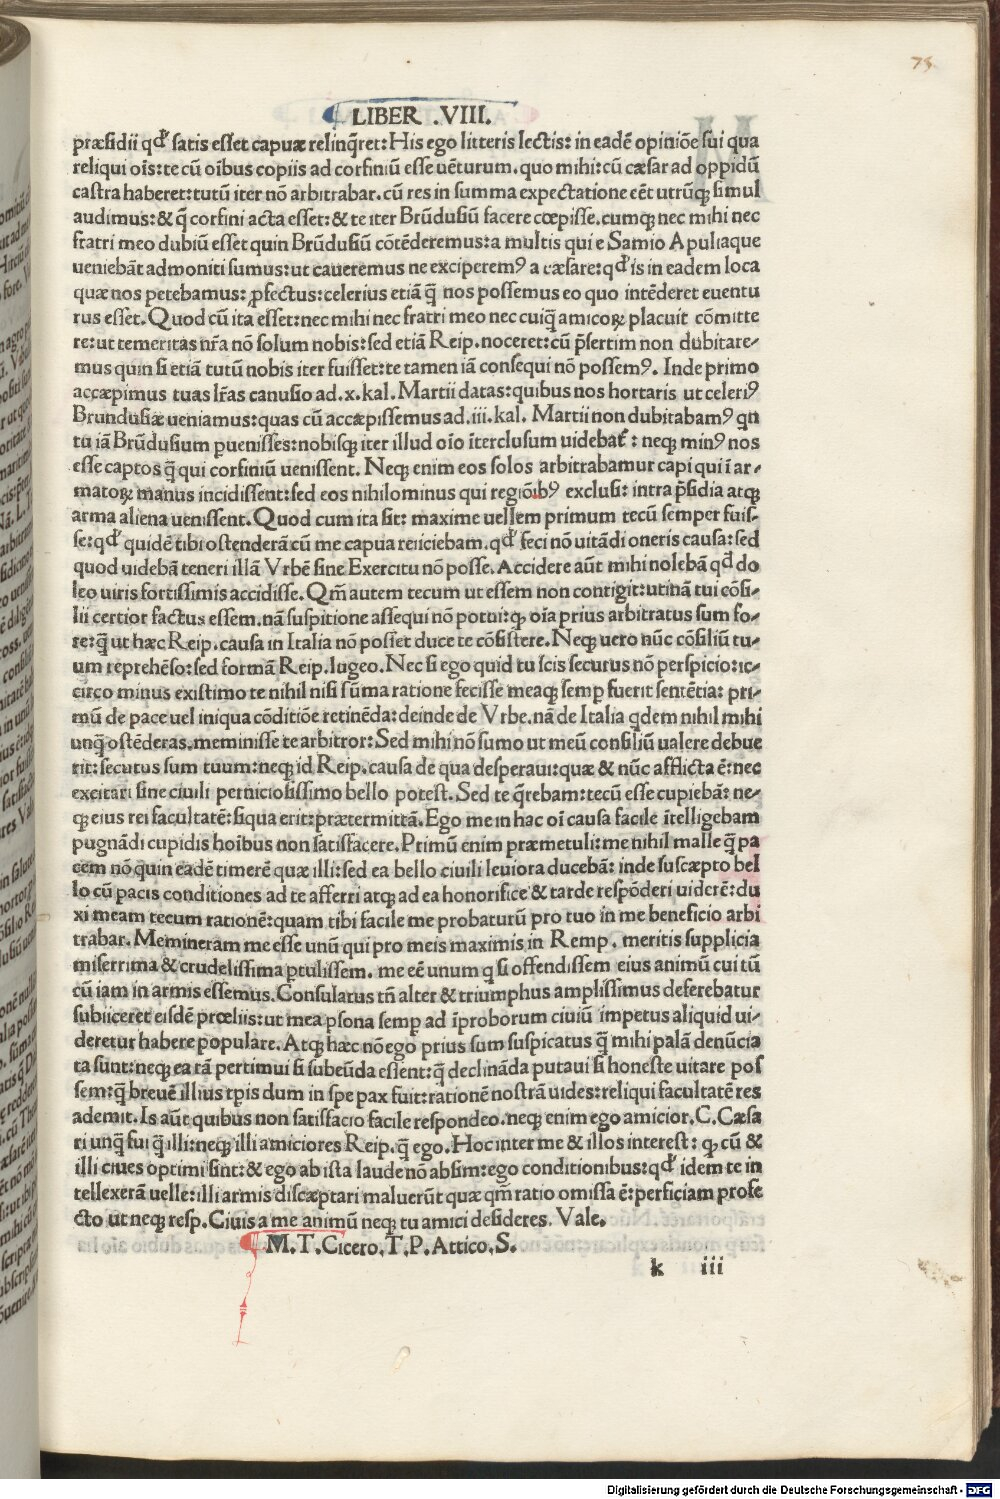 75
LIBER .VIII.
præsidii qđ satis esset capuæ relinq̃ret: His ego litteris lectis: in eadẽ opiniõe fui qua
reliqui oĩs: te cũ oĩbus copiis ad corfiniũ esse uẽturum. quo mihi: cũ cæsar ad oppidũ
castra haberet: tutũ iter nõ arbitrabar. cũ res in summa expectatione eẽt utrũqꝫ simul
audimus: & q̃ corfini acta esset: & te iter Brũdusiũ facere cœpisse. cumqꝫ nec mihi nec
fratri meo dubiũ esset quin Brũdusiũ cõtẽderemus: a multis qui e Samio Apuliaque
ueniebãt admoniti sumus: ut caueremus ne exciperemꝰ a cæsare: qđ is in eadem loca
quæ nos petebamus: ꝓfectus: celerius etiã q̃ nos possemus eo quo intẽderet euentu
rus esset. Quod cũ ita esset: nec mihi nec fratri meo nec cuiq̃ amicoꝝ placuit cõmitte
re: ut temeritas nr̃a nõ solum nobis: sed etiã Reip. noceret: cũ p̃sertim non dubitare-
mus quin si etiã tutũ nobis iter fuisset: te tamen iã consequi nõ possemꝰ. Inde primo
accæpimus tuas lr̃as canusio ad .x. kal. Martii datas: quibus nos hortaris ut celeriꝰ
Brundusiæ ueniamus: quas cũ accæpissemus ad .iii. kal. Martii non dubitabamꝰ qn
tu iã Brũdusium ꝑuenisses: nobisqꝫ iter illud oĩo ĩterclusum uidebat̃: neqꝫ minꝰ nos
esse captos q̃ qui corfiniũ uenissent. Neqꝫ enim eos solos arbitrabamur capi qui ĩ ar-
matoꝝ manus incidissent: sed eos nihilominus qui regiõibꝰ exclusi: intra p̃sidia atqꝫ
arma aliena uenissent. Quod cum ita sit: maxime uellem primum tecũ semper fuis-
se: qđ quidẽ tibi ostenderã cũ me capua reiiciebam. qđ feci nõ uitãdi oneris causa: sed
quod uidebã teneri illã Vrbẽ sine Exercitu nõ posse. Accidere aũt mihi nolebã qđ do
leo uiris fortissimis accidisse. Qm̃ autem tecum ut essem non contigit: utinã tui cõsi-
lii certior factus essem. nã suspitione assequi nõ potui: qꝫ oĩa prius arbitratus sum fo-
re: q̃ ut hæc Reip. causa in Italia nõ posset duce te cõsistere. Neqꝫ uero nũc cõsiliũ tu-
um reprehẽso: sed formã Reip. lugeo. Nec si ego quid tu scis securus nõ perspicio: ic-
circo minus existimo te nihil nisi sũma ratione fecisse meaqꝫ semꝑ fuerit sentẽtia: pri-
mũ de pace uel iniqua cõditiõe retinẽda: deinde de Vrbe. nã de Italia qdem nihil mihi
unq̃ ostẽderas. meminisse te arbitror: Sed mihi nõ sumo ut meũ consiliũ ualere debue
rit: secutus sum tuum: neqꝫ id Reip. causa de qua desperaui: quæ & nũc afflicta ẽ: nec
excitari sine ciuili perniciosissimo bello potest. Sed te q̃rebam: tecũ esse cupiebã: ne-
qꝫ eius rei facultatẽ: siqua erit: prætermittã. Ego me in hac oĩ causa facile ĩtelligebam
pugnãdi cupidis hoĩbus non satisfacere. Primũ enim præmetuli: me nihil malle q̃ pa
cem nõ quin eadẽ timerẽ quæ illi: sed ea bello ciuili leuiora ducebã: inde suscæpto bel
lo cũ pacis conditiones ad te afferri atqꝫ ad ea honorifice & tarde respõderi uiderẽ: du
xi meam tecum rationẽ: quam tibi facile me probaturũ pro tuo in me beneficio arbi
trabar. Memineram me esse unũ qui pro meis maximis in Remp. meritis supplicia
miserrima & crudelissima ꝑtulissem. me eẽ unum q si offendissem eius animũ cui tũ
cũ iam in armis essemus. Consularus tñ alter & triumphus amplissimus deferebatur
subiiceret eisdẽ prœliis: ut mea ꝑsona semꝑ ad ĩproborum ciuiũ impetus aliquid ui-
deretur habere populare. Atqꝫ hæc nõ ego prius sum suspicatus q̃ mihi palã denũcia
ta sunt: neqꝫ ea tã pertimui si subeũda essent: q̃ declinãda putaui si honeste uitare pos
sem: q̃ breuẽ illius tꝑis dum in spe pax fuit: rationẽ nostrã uides: reliqui facultatẽ res
ademit. Is aũt quibus non satisfacio facile respondeo. neqꝫ enim ego amicior. C. Cæsa
ri unq̃ fui q̃ illi: neqꝫ illi amiciores Reip. q̃ ego. Hoc inter me & illos interest: qꝫ cũ &
illi ciues optimi sint: & ego ab ista laude nõ absim: ego conditionibus: qđ idem te in
tellexerã uelle: illi armis discæptari maluerũt quæ qm̃ ratio omissa ẽ: perficiam profe
cto ut neqꝫ resp. Ciuis a me animũ neqꝫ tu amici desideres. Vale.
M. T. Cicero. T. P. Attico. S.
k iii
Digitalisierung gefördert durch die Deutsche Forschungsgemeinschaft - DFG